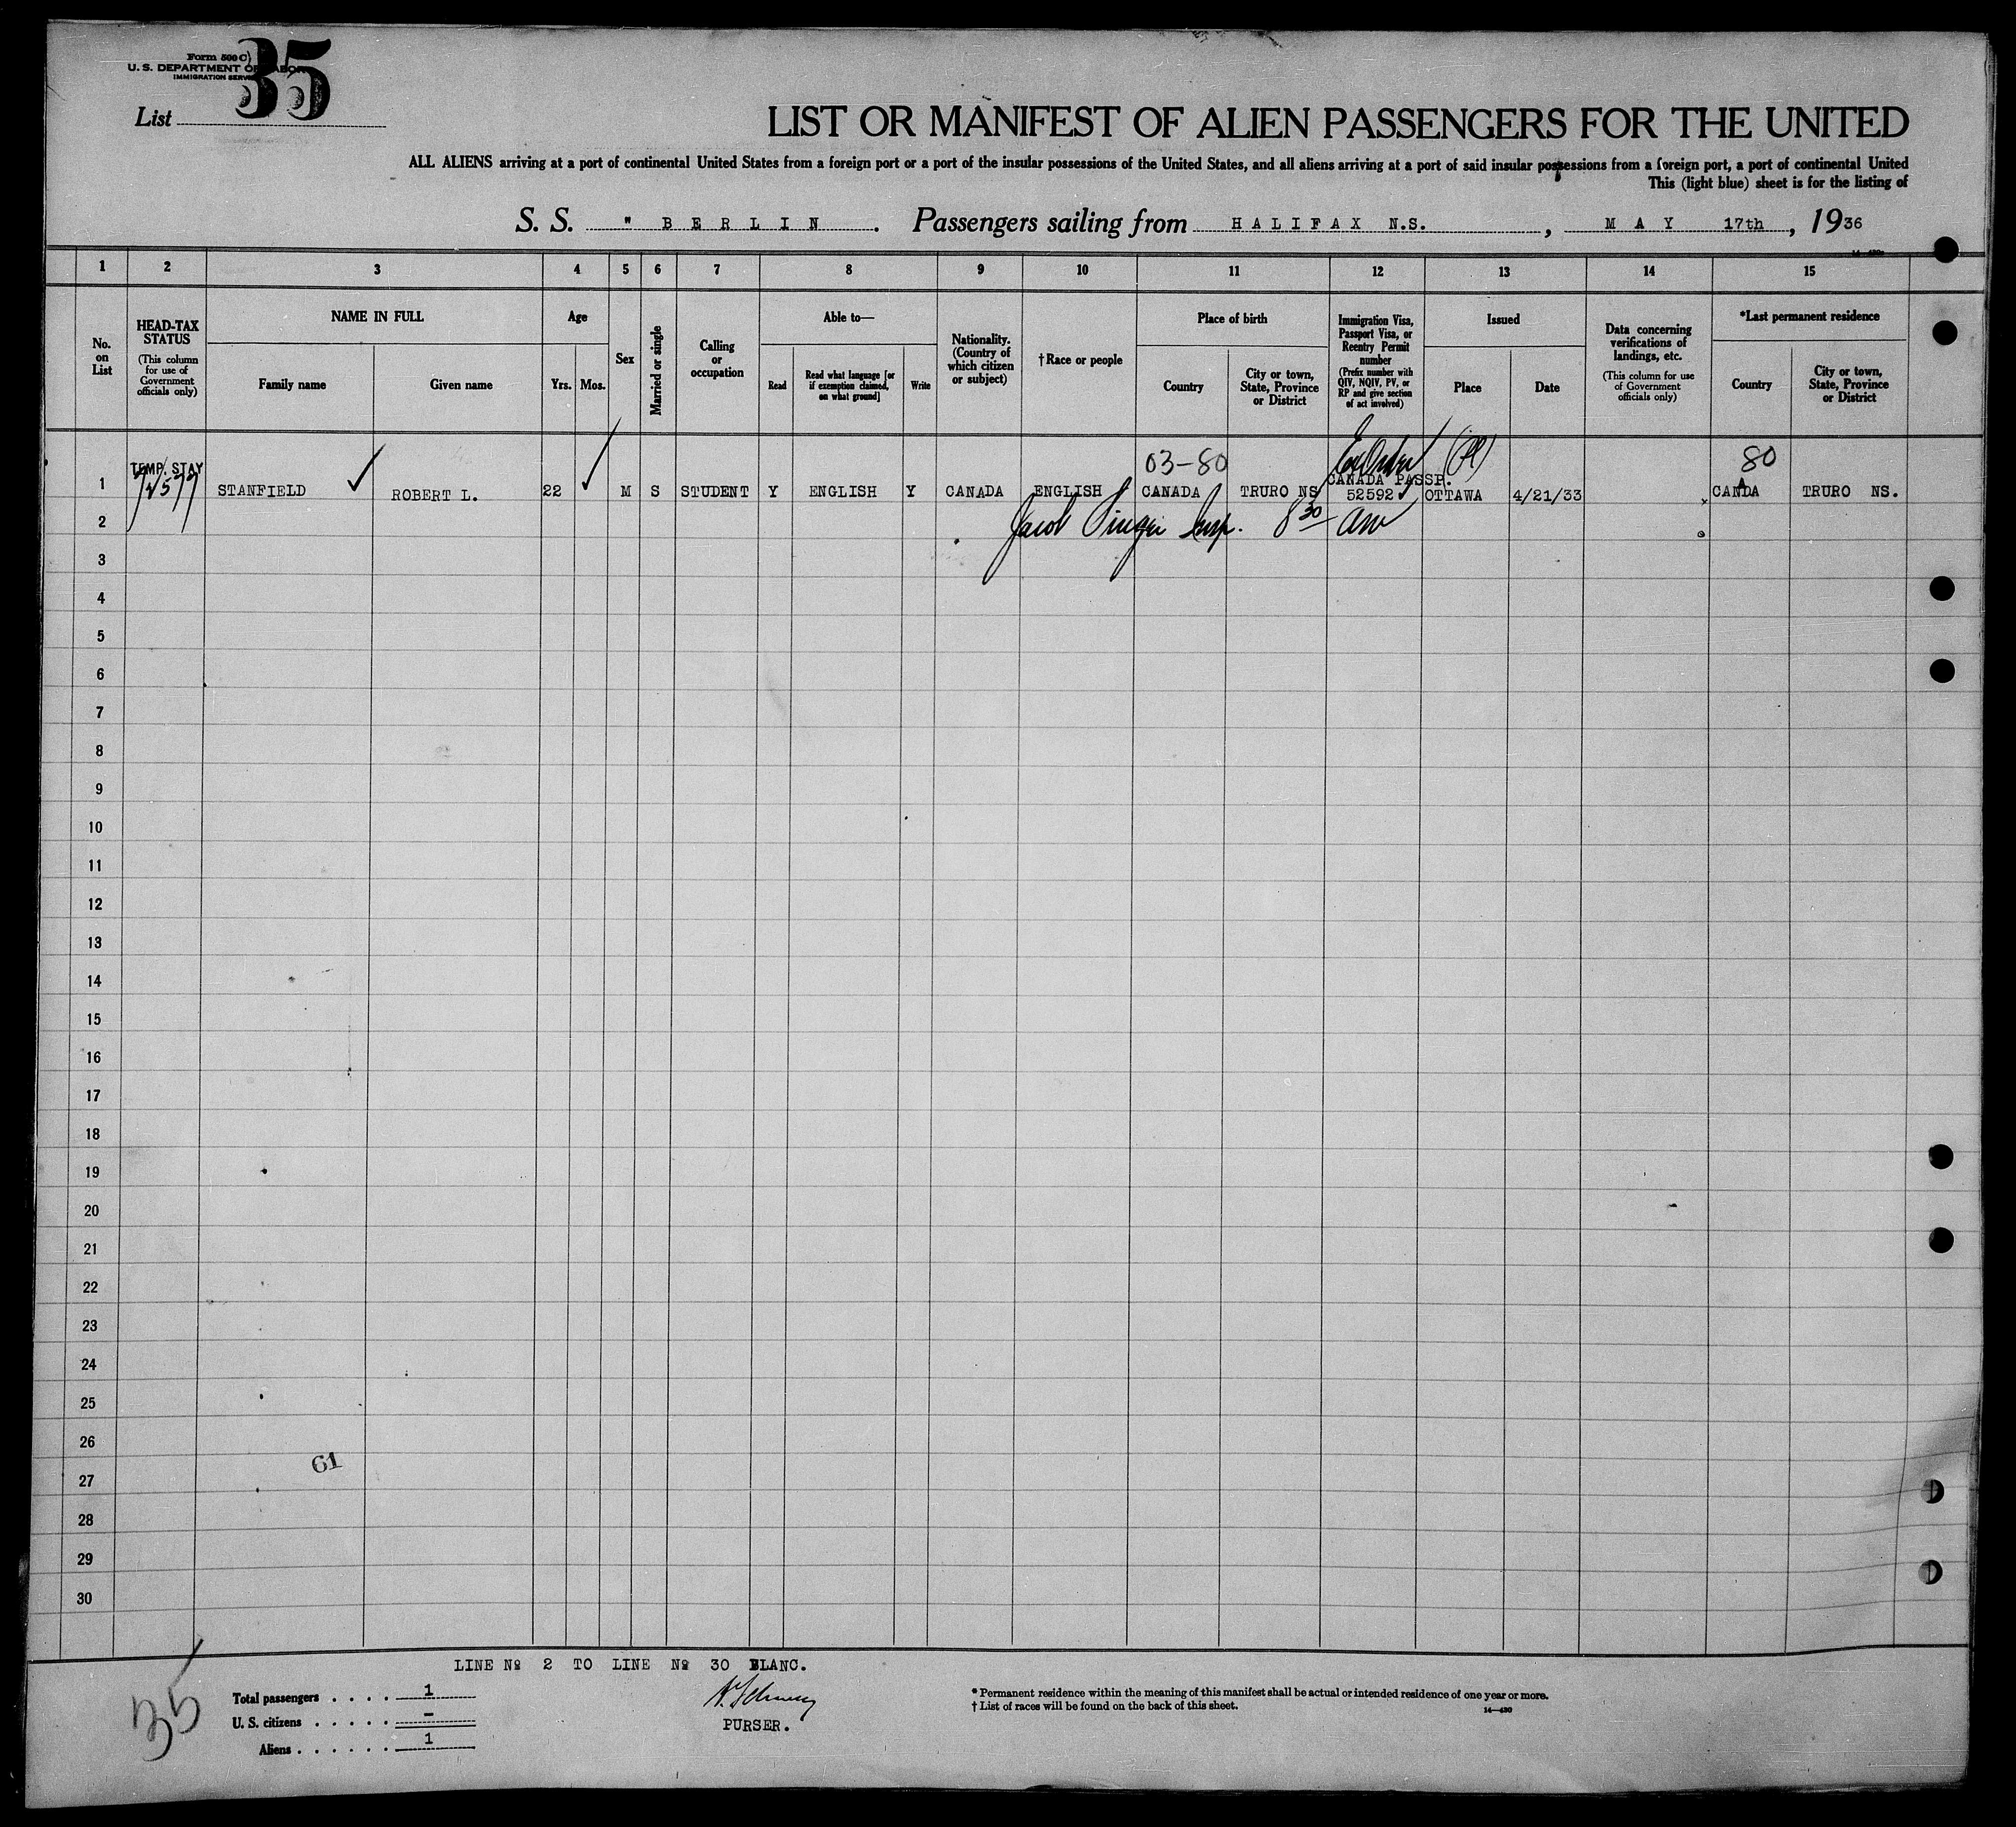 Form 500 C)
U. S. DEPARTMENT OF LABOR
IMMIGRATION SERVICE
List 35
LIST OR MANIFEST OF ALIEN PASSENGERS FOR THE UNITED
ALL ALIENS arriving at a port of continental United States from a foreign port or a port of the insular possessions of the United States, and all aliens arriving at a port of said insular possessions from a foreign port, a port of continental United
This (light blue) sheet is for the listing of
S. S. " BERLIN . Passengers sailing from HALIFAX N.S. , MAY 17th , 1936
1 2 3 4 5 6 7 8 9 10 11 12 13 14 15
No. on List
HEAD-TAX STATUS
(This column for use of Government officials only)
NAME IN FULL
Family name
Given name
Age
Yrs.
Mos.
Sex
Married or single
Calling or occupation
Able to—
Read
Read what language [or if exemption claimed, on what ground]
Write
Nationality. (Country of which citizen or subject)
†Race or people
Place of birth
Country
City or town, State, Province or District
Immigration Visa, Passport Visa, or Reentry Permit number
(Prefix number with QIV, NQIV, PV, or RP and give section of act involved)
Issued
Place
Date
Data concerning verifications of landings, etc.
(This column for use of Government officials only)
*Last permanent residence
Country
City or town, State, Province or District
03-80 80
TEMP. STAY CANADA PASSP.
1 STANFIELD ROBERT L. 22 M S STUDENT Y ENGLISH Y CANADA ENGLISH CANADA TRURO NS 52592 OTTAWA 4/21/33 CANADA TRURO NS.
2 Jacob Insp. 8 30 am
3
4
5
6
7
8
9
10
11
12
13
14
15
16
17
18
19
20
21
22
23
24
25
26
61
27
28
29
30
LINE № 2 TO LINE № 30 BLANC.
35
Total passengers . . . . 1
U. S. citizens . . . . . –
Aliens . . . . . . 1
PURSER.
* Permanent residence within the meaning of this manifest shall be actual or intended residence of one year or more.
† List of races will be found on the back of this sheet.
14—430